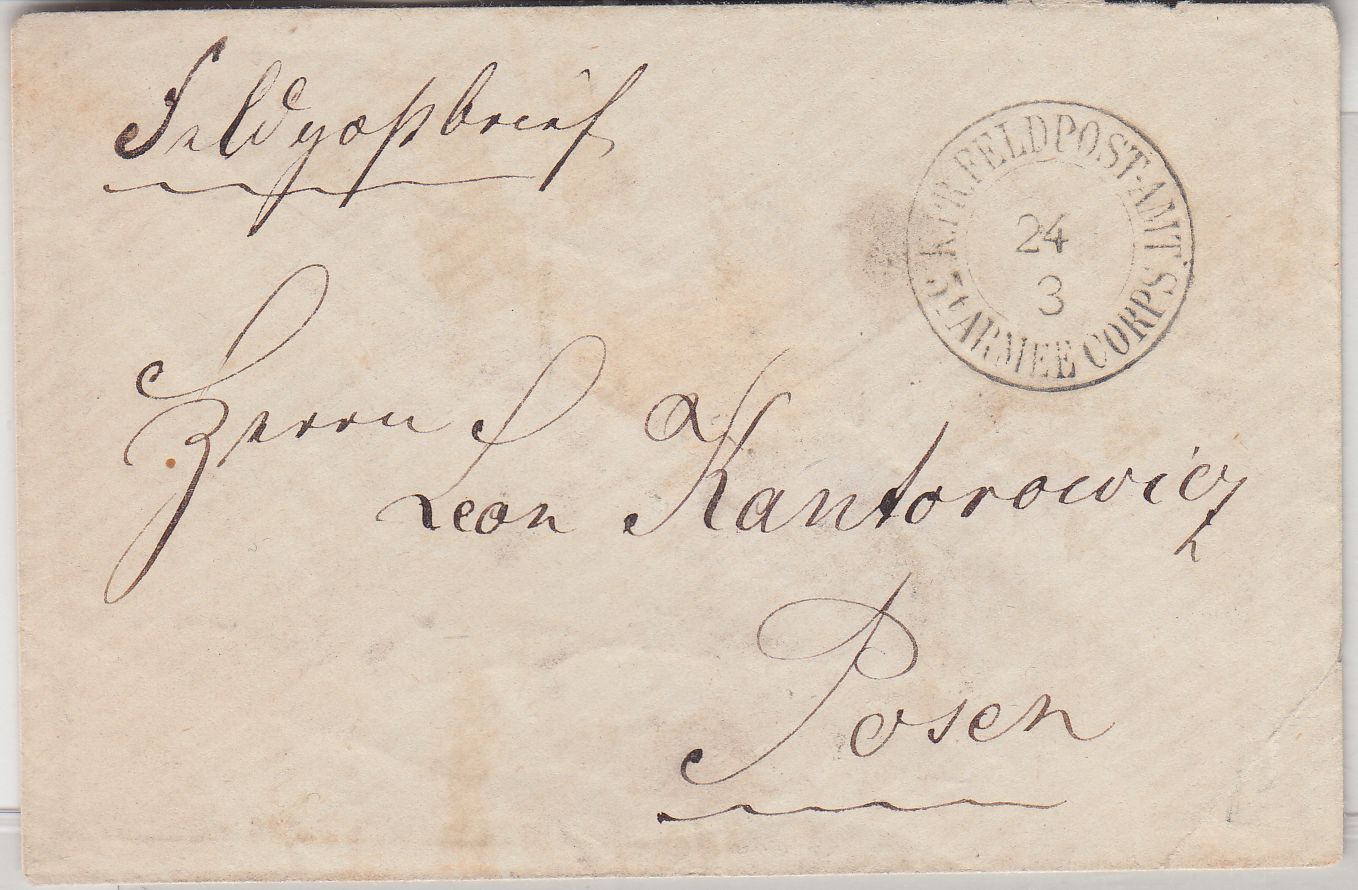 Feldpostbrief
K.PR.FELDPOST-AMT
24
3
5t ARMEE CORPS
Herrn
Leon Kantorowicz
Posen